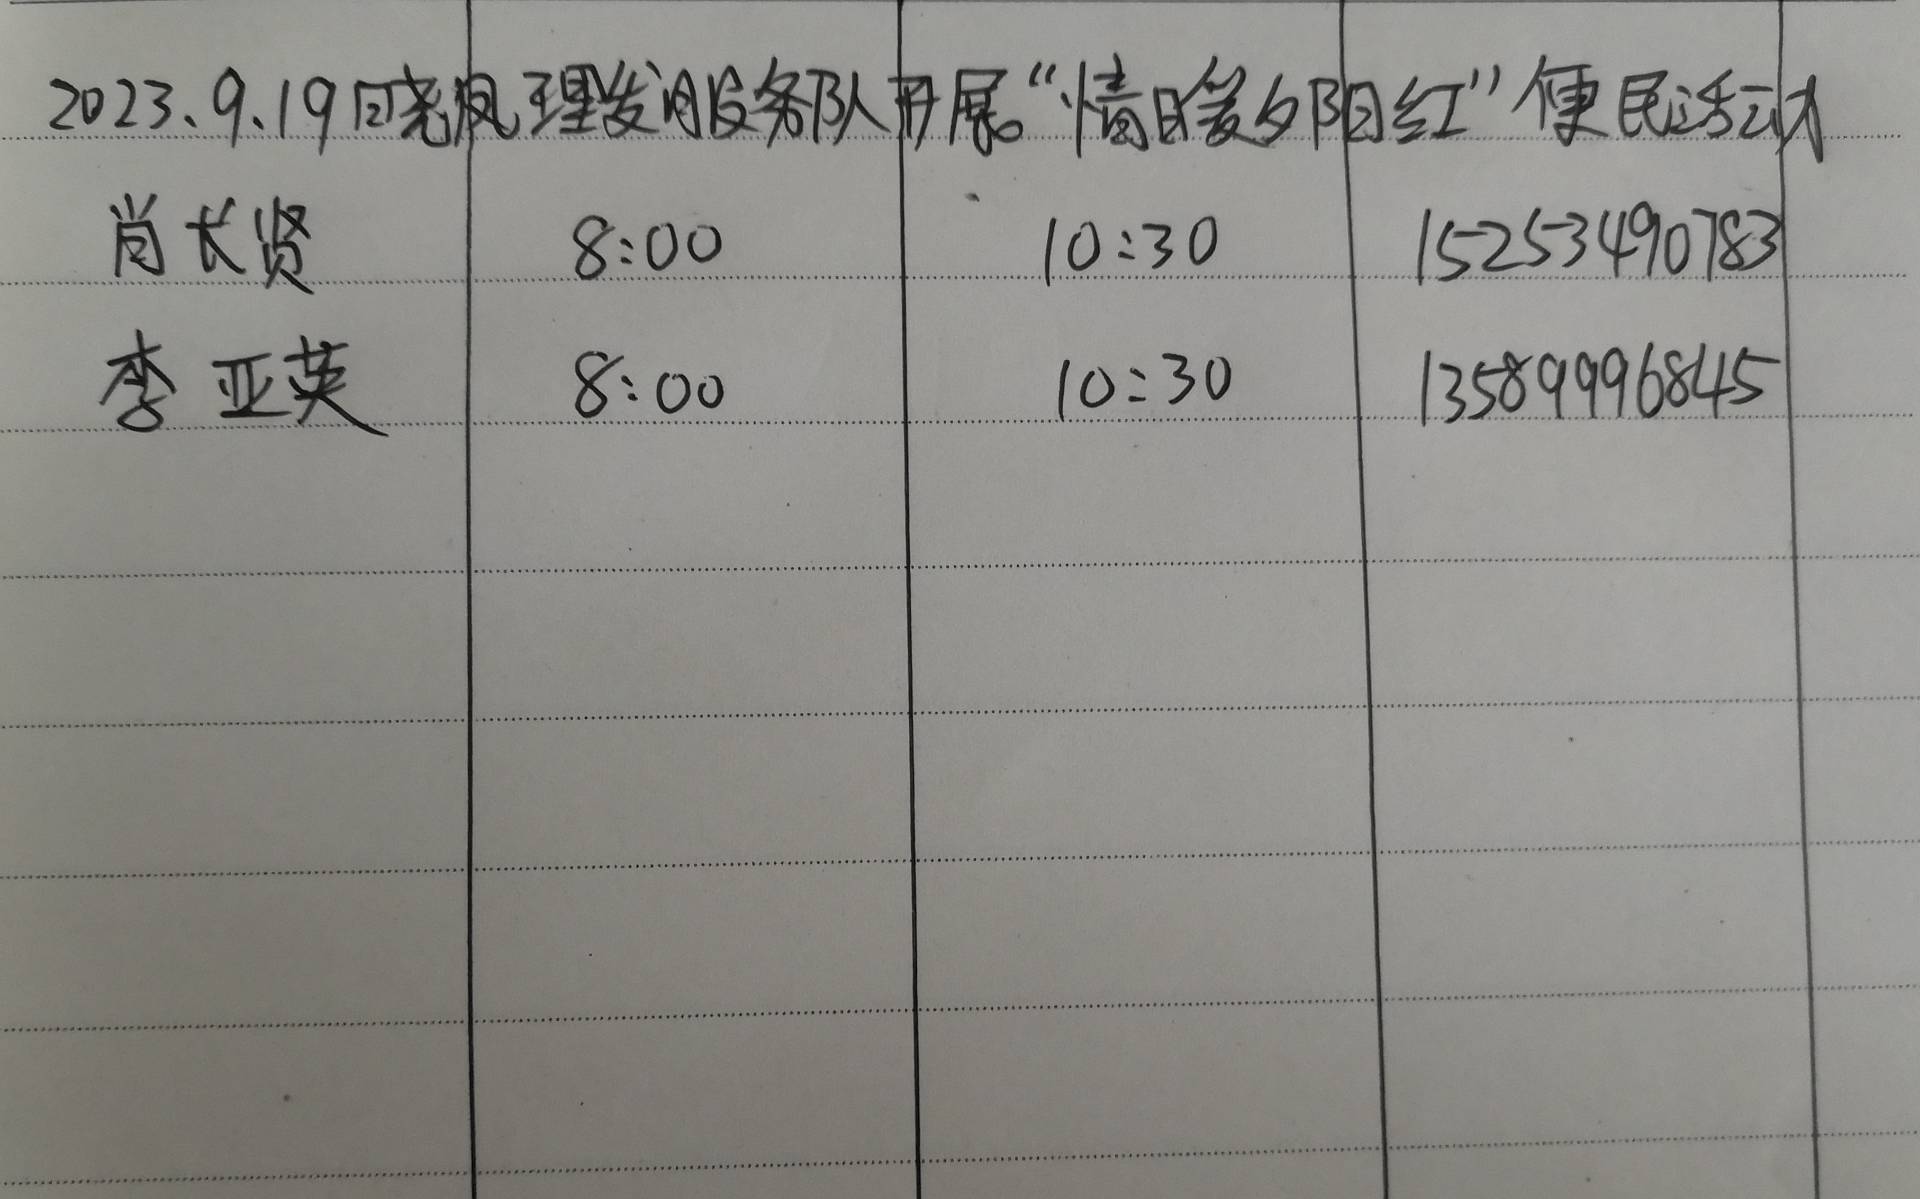 2023.9.19日晓凤理发服务队开展“情暖夕阳红”便民活动
肖长贤 8:00 10:30 15253490783
李亚英 8:00 10:30 13589996845